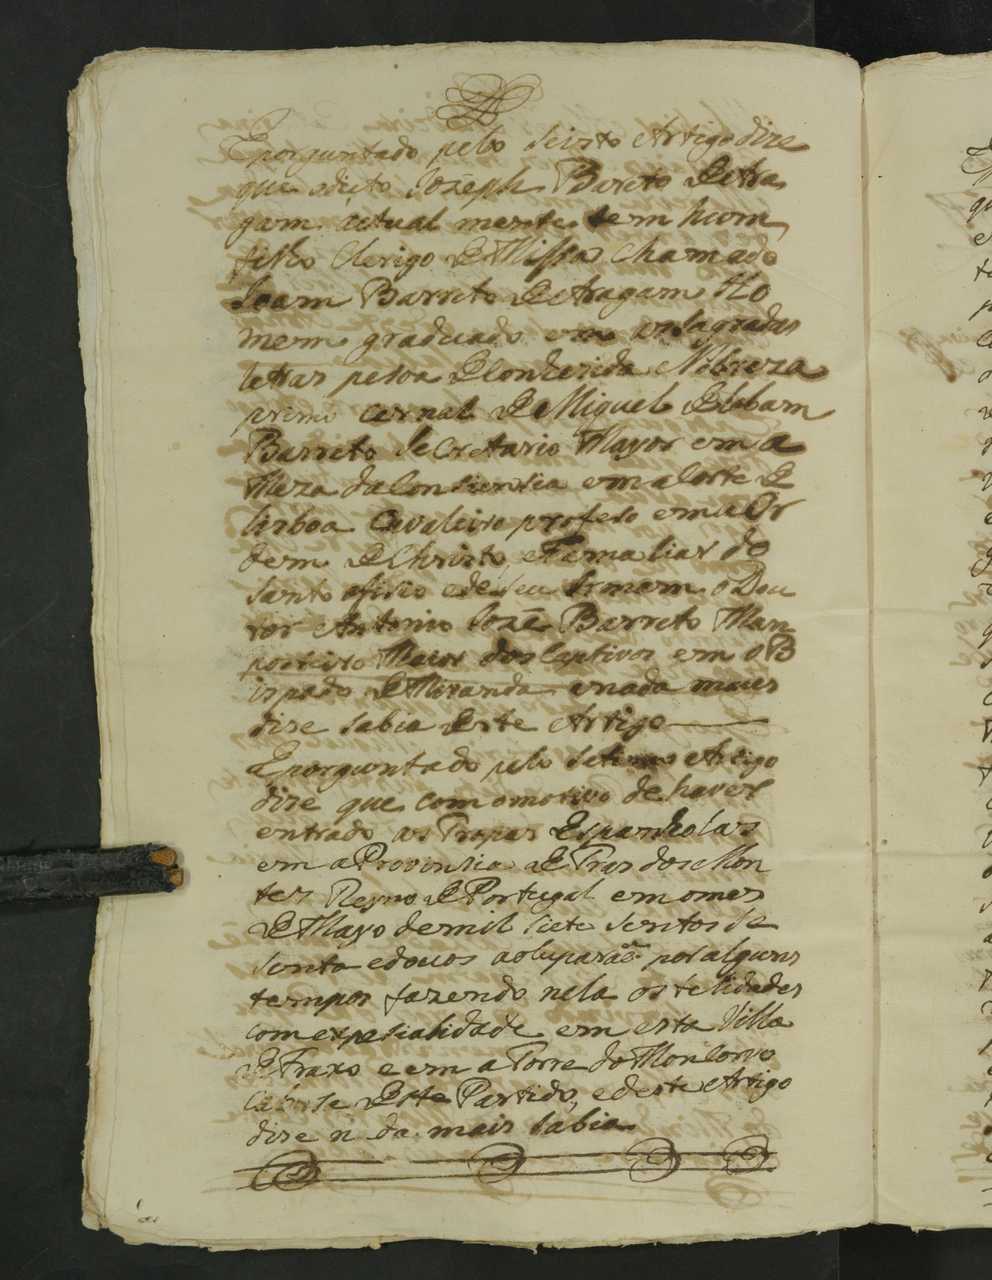 E porguntado pelo Seisto Artigo dise
que o dito Joseph Bareto de Ara
gam actual mente tem hum
filho Clerigo de Missa Chamado
Joam Barreto de Aragam Ho
mem graduado em as sagradas
letras pesoa de Conhesida Nobreza
primo carnal de Miguel Estebam
Barreto Secretario Mayor em a
Meza da Consiensia em a Corte de
lisboa Cavaleiro profeso em a Or
dem de Christo, e Famaliar do
santo ofisio e de seu Irmam o Dou
tor Antonio Jozé Barreto Mam
posteiro Maior dos Captivos em o B
ispado de Miranda e nada mais
dise sabia deste Artigo
E porguntado pelo Setimo Artigo
dise que com o motivo de haver
entrado as Tropas Espanholas
em a Provinsia de Tras dos Mon
tes Reyno de Portugal em o mes
de Mayo de mil siete sentos se
senta e douos a ocuparão por alguns
tempos fazendo nela ostelidades
com expesialidade em esta Villa
de Fraxo e em a Torre do Moncorvo
Cabese deste Partido, e deste Artigo
dise nada mais sabia